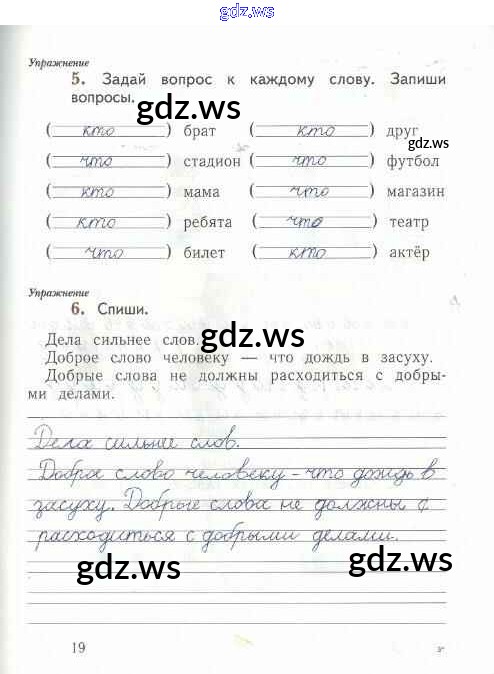 gdz.ws
Упражнение
5. Задай вопрос к каждому слову. Запиши
вопросы.
gdz.ws
( кто ) брат ( кто ) друг
gdz.ws
( что ) стадион ( что ) футбол
( кто ) мама ( что ) магазин
( кто ) ребята ( что ) театр
( что ) билет ( кто ) актёр
Упражнение
6. Спиши.
gdz.ws
Дела сильнее слов.
Доброе слово человеку — что дождь в засуху.
Добрые слова не должны расходиться с добры-
ми делами.
Дела сильнее слов.
Доброе слово человеку - что дождь в
засуху. Добрые слова не должны с
расходиться с добрыми делами.
gdz.ws
gdz.ws
19
3*